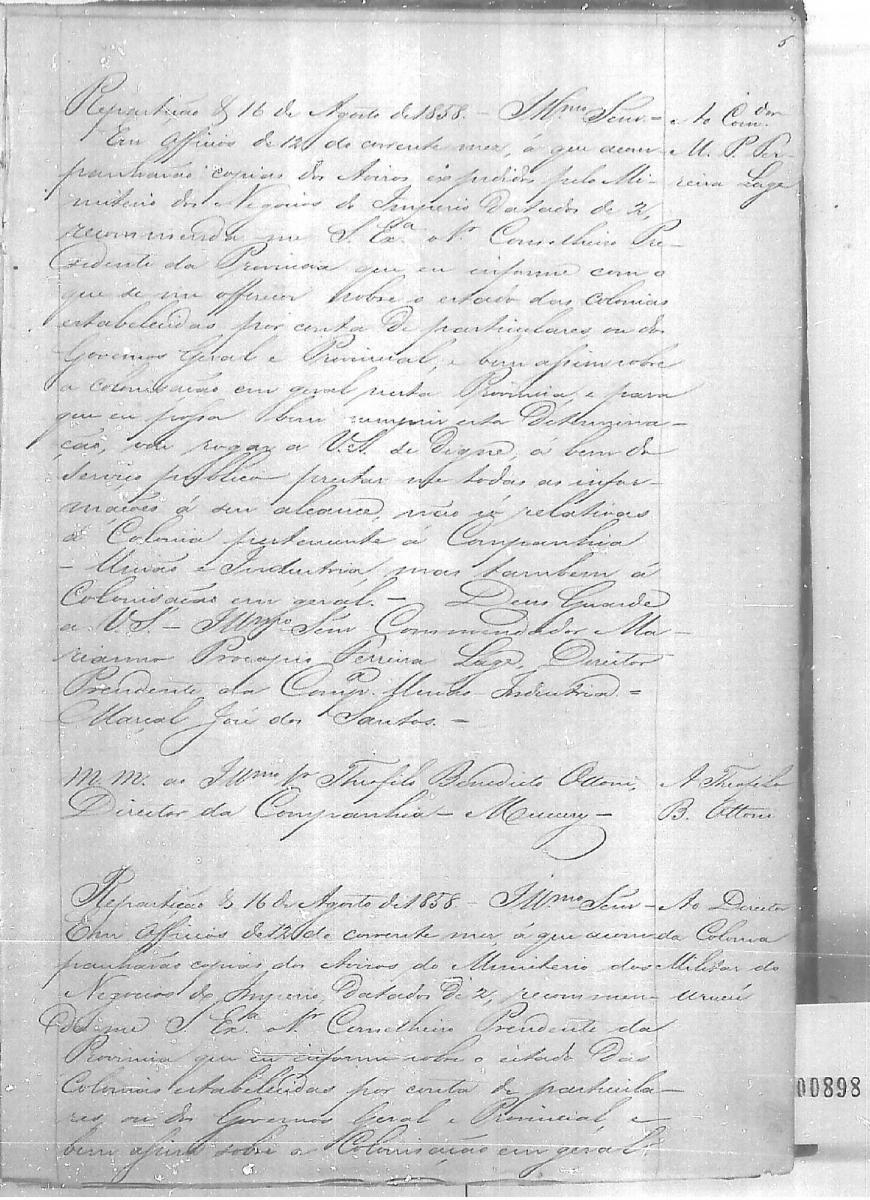 5
Repartição & 16 de Agosto de 1858. – Illmo Senr. – Ao Comdor
Em Officios de 12 do corrente mez, á que acom- M. P. Fer-
panharão copias dos Avisos expedidos pelo Mi- reira Lage
nisterio dos Negocios do Imperio Datados de 2,
recommenda-me S. Exa. o Sr. Conselheiro Pre-
sidente da Provincia que eu informe com o
que se me offerecer sobre o estado das Colonias
estabelecidas por conta de particulares ou dos
Governos Geral e Provincial, e bem assim sobre
a colonisação em geral nesta Provincia, e para
que eu possa bem cumprir esta Determina-
ção, vou rogar a V.S. se Digne, á bem do
serviço publico prestar-me todas as infor-
mações á seu alcance, não só relativas
á Colonia pertencente á Companhia
– União e Industria, mas tambem á
Colonisação em geral. – Deus Guarde
a V.S. – Illmo Senr Commendador Ma-
rianno Procopio Ferreira Lage, Director
Presidente da Compa. União Industria. –
Marçal José dos Santos. –
M. M. ao Illmo Sr Theofilo Benedicto Ottoni, A Theofilo
Director da Companhia – Mucury – B. Ottoni
Repartição & 16 de Agosto de 1858 – Illmo Senr – Ao Director
Em Officios de 12 do corrente mez, á que acom da Colonia
panharão copias dos Avisos do Ministerio dos Militar do
Negocios do Imperio, Datados de 2, recommen- Urucú
da-me S Exa. o Sr Conselheiro Presidente da
Provincia que eu informe sobre o estado das
Colonias estabelecidas por conta de particula-
res, ou dos Governos Geral e Provincial, e
bem assim sobre a Colonisação em geral.
00898